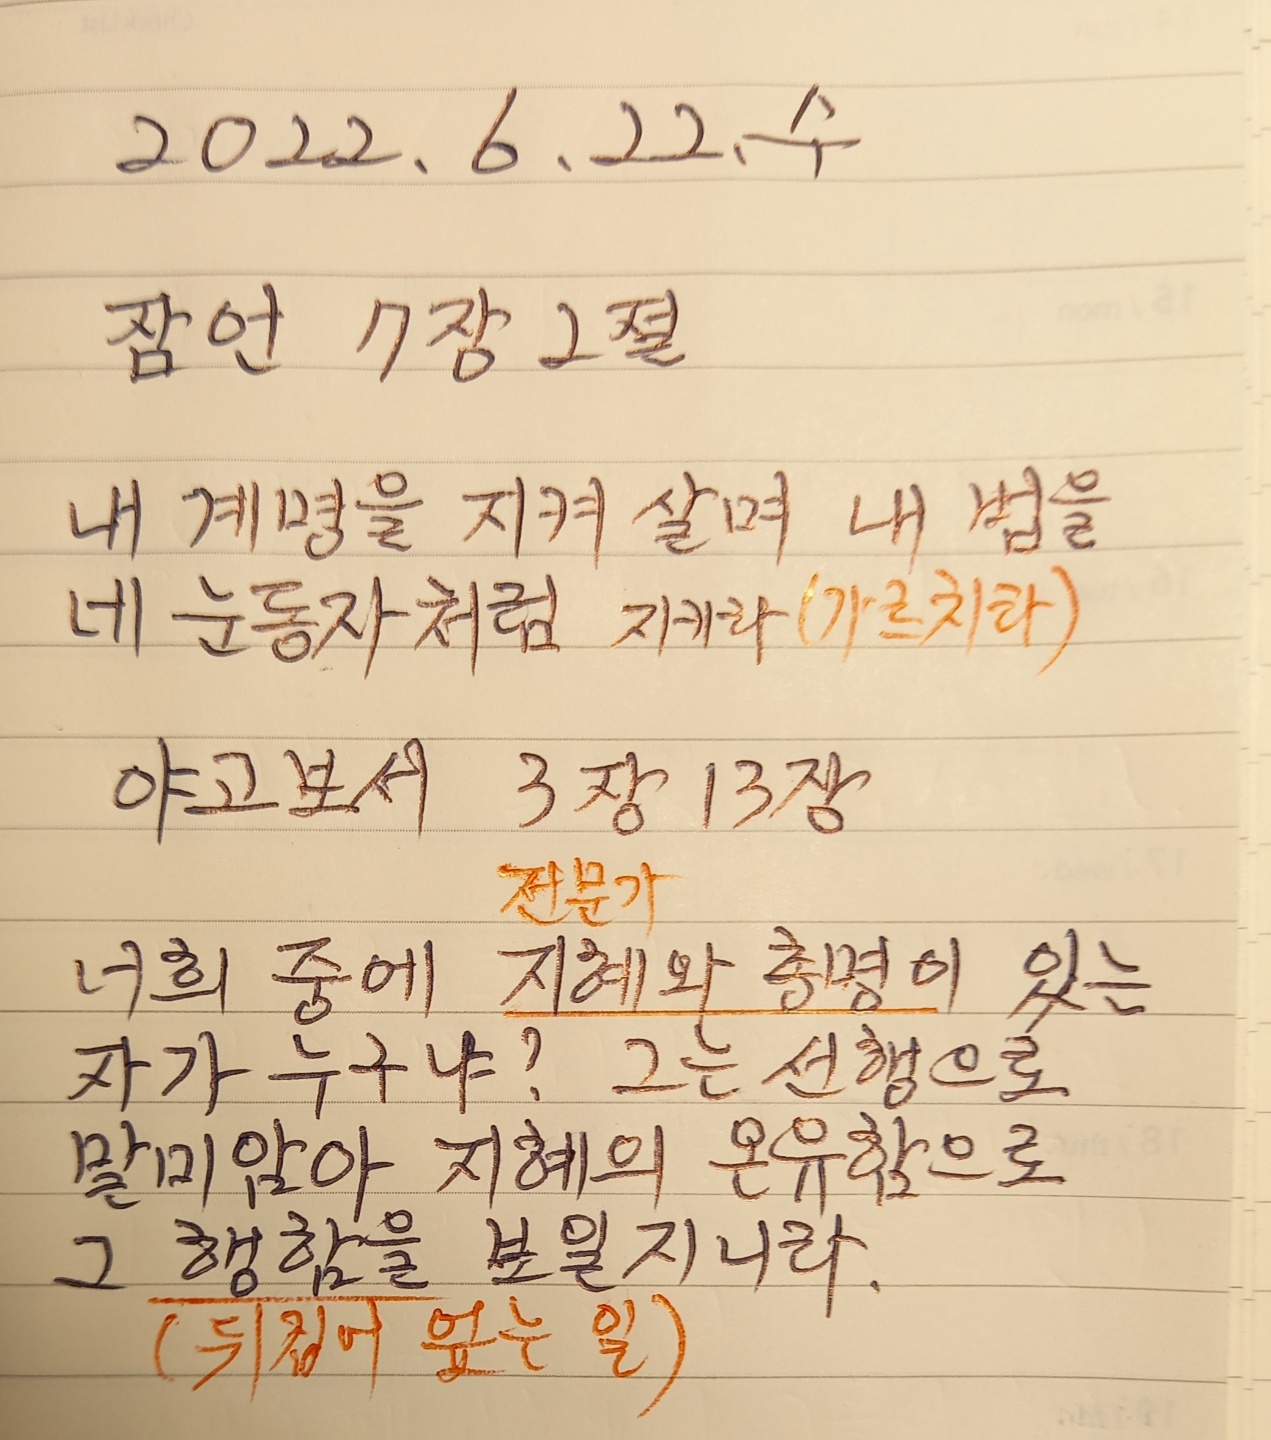 2022. 6. 22. 수
잠언 7장 2절
내 계명을 지켜 살며 내 법을
네 눈동자처럼 지키라 (가르치라)
야고보서 3장 13장
전문가
너희 중에 지혜와 총명이 있는
자가 누구냐? 그는 선행으로
말미암아 지혜의 온유함으로
그 행함을 보일지니라.
(뒤집어 엎는 일)